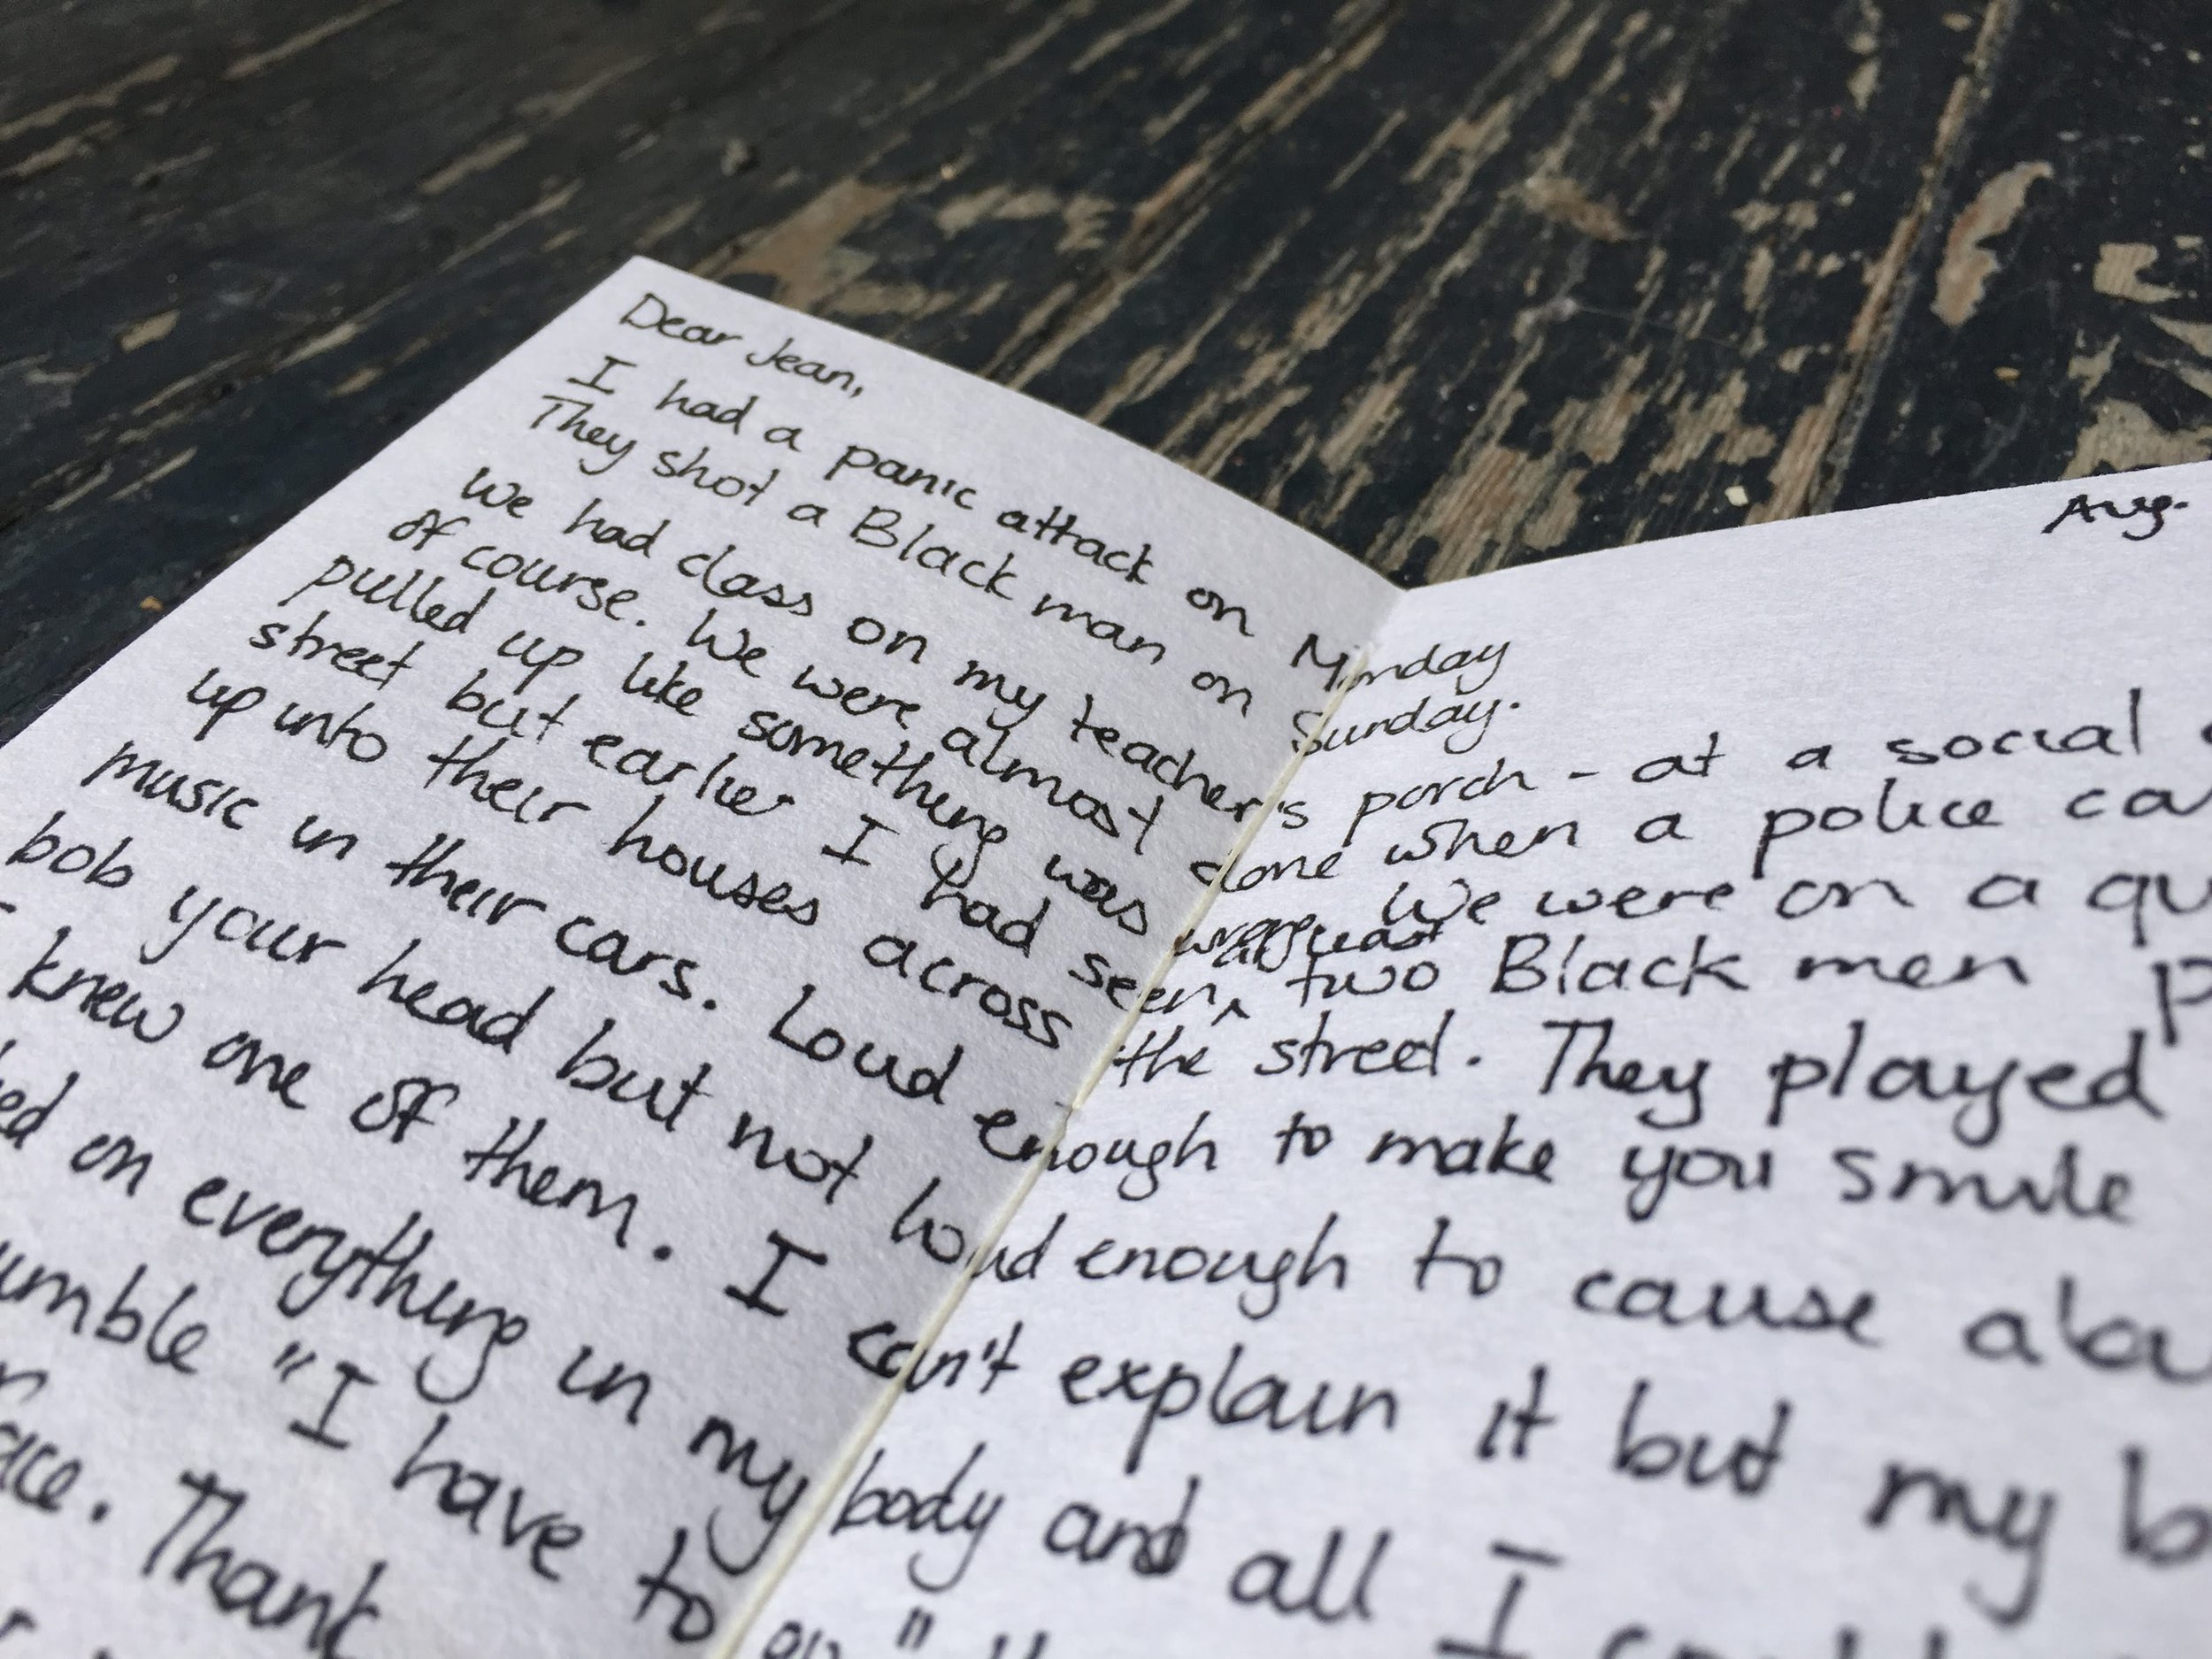 Aug.
Dear Jean,
I had a panic attack on Monday
They shot a Black man on Sunday.
We had class on my teacher's porch - at a social
of course. We were almost done when a police
pulled up like something was wrong. We were on a
street but earlier I had seen at least two Black men
up into their houses across the street. They played
music in their cars. Loud enough to make you smile
bob your head but not loud enough to cause
knew one of them. I can't explain it but my
on everything in my body and all I
"I have to go"
Thank